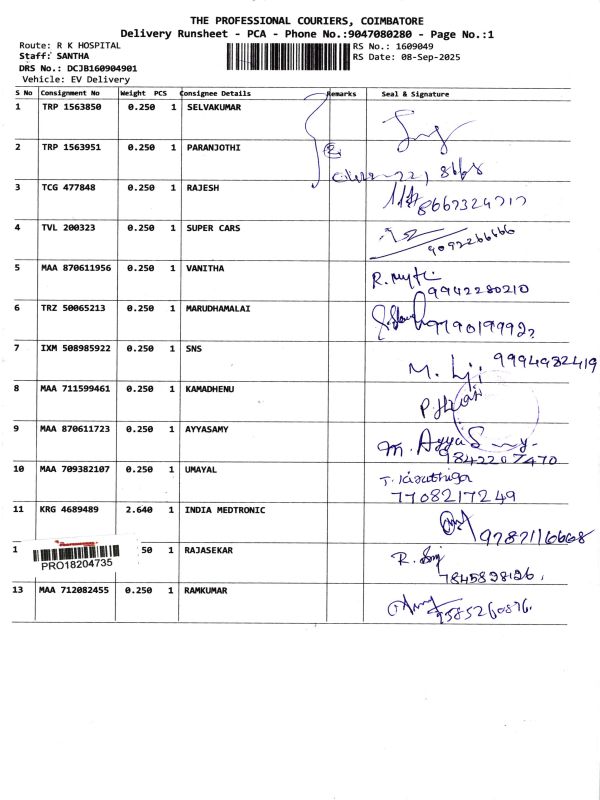 THE PROFESSIONAL COURIERS, COIMBATORE
Delivery Runsheet - PCA - Phone No.:9047080280 - Page No.:1
Route: R K HOSPITAL
RS No.: 1609049
Staff: SANTHA
RS Date: 08-Sep-2025
DRS No.: DCJB160904901
Vehicle: EV Delivery
S No Consignment No Weight PCS Consignee Details Remarks Seal & Signature
1 TRP 1563850 0.250 1 SELVAKUMAR
2 TRP 1563951 0.250 1 PARANJOTHI
3 TCG 477848 0.250 1 RAJESH 8667324717
4 TVL 200323 0.250 1 SUPER CARS 9092266666
5 MAA 870611956 0.250 1 VANITHA 9942280210
6 TRZ 50065213 0.250 1 MARUDHAMALAI
7 IXM 508985922 0.250 1 SNS 9994982419
8 MAA 711599461 0.250 1 KAMADHENU
9 MAA 870611723 0.250 1 AYYASAMY M. Ayya
9842207470
10 MAA 709382107 0.250 1 UMAYAL
7708217249
11 KRG 4689489 2.640 1 INDIA MEDTRONIC
1 50 1 RAJASEKAR R.
PRO18204735
7845898126.
13 MAA 712082455 0.250 1 RAMKUMAR 9585260876.